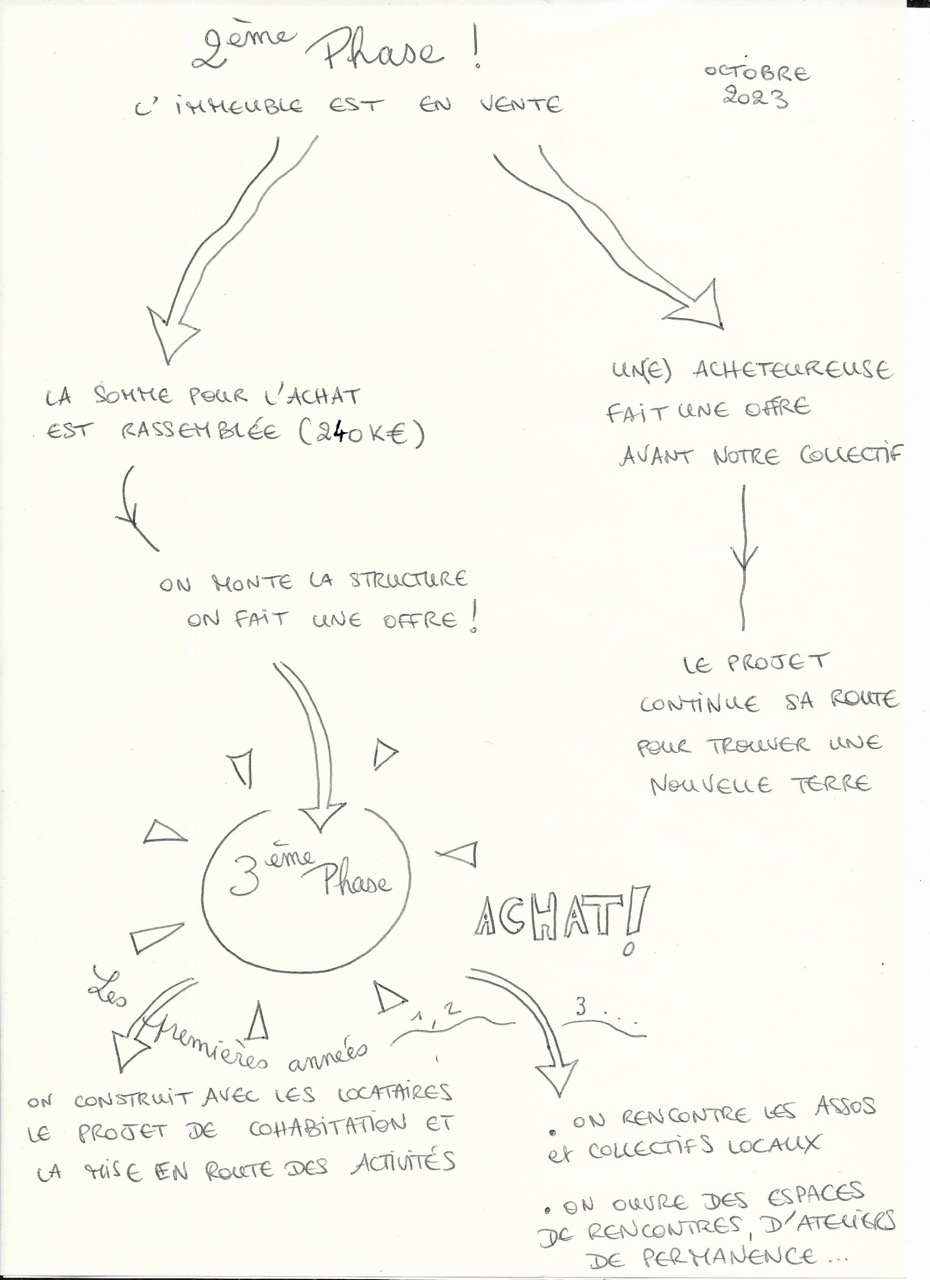 2ème Phase !
OCTOBRE
2023
L'IMMEUBLE EST EN VENTE
LA SOMME POUR L'ACHAT
EST RASSEMBLÉE (240K€)
UN(E) ACHETEUREUSE
FAIT UNE OFFRE
AVANT NOTRE COLLECTIF
ON MONTE LA STRUCTURE
ON FAIT UNE OFFRE !
LE PROJET
CONTINUE SA ROUTE
POUR TROUVER UNE
NOUVELLE TERRE
3ème Phase
ACHAT!
Les premières années 1, 2 3 ...
ON CONSTRUIT AVEC LES LOCATAIRES
LE PROJET DE COHABITATION ET
LA MISE EN ROUTE DES ACTIVITÉS
. ON RENCONTRE LES ASSOS
et COLLECTIFS LOCAUX
. ON OUVRE DES ESPACES
DE RENCONTRES, D'ATELIERS
DE PERMANENCE ...